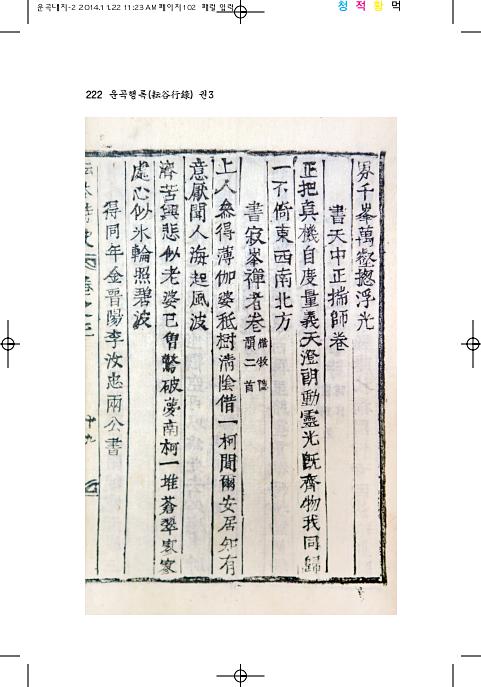 운곡대지-2 2014.11.22 11:23 AM 페이지102
청 적 황 먹
222 운곡행록(耘谷行錄) 권3
界千峯萬壑摠浮光
書天中正揣師卷
正把真機自度量義天澄朗動靈光旣齊物我同歸
一不倚東西南北方
書寂峯禪者卷 韻二首
上人叅得薄伽婆秪樹淸陰借一柯聞爾安居知有
意厭聞人海起風波
濟苦興悲似老婆已曾驚破夢南柯一堆蒼翠寥寥
處心似氷輪照碧波
得同年金晋陽李汝忠兩公書
十九